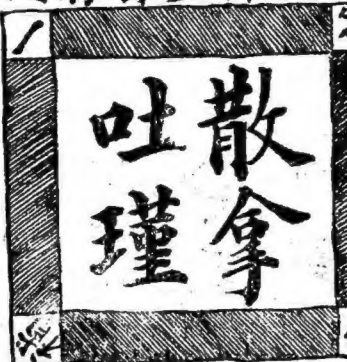 散拿
吐瑾